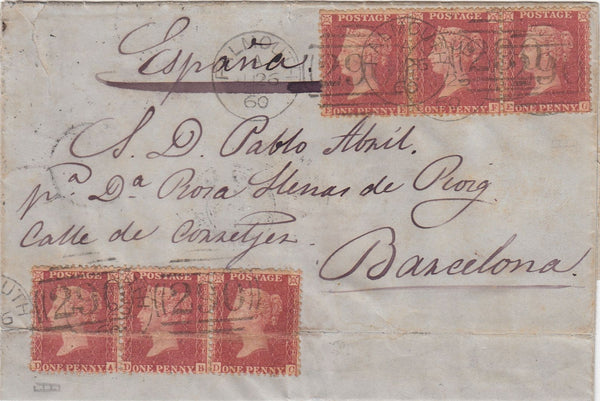 POSTAGE POSTAGE POSTAGE
España
FALMOUTH
26
60
ONE PENNY E ONE PENNY F ONE PENNY G
S. D. Pablo Abril.
pª Dª Rosa Llenas de Roig
Calle de Corretjer.
Barcelona.
POSTAGE POSTAGE POSTAGE
D ONE PENNY A D ONE PENNY B D ONE PENNY C